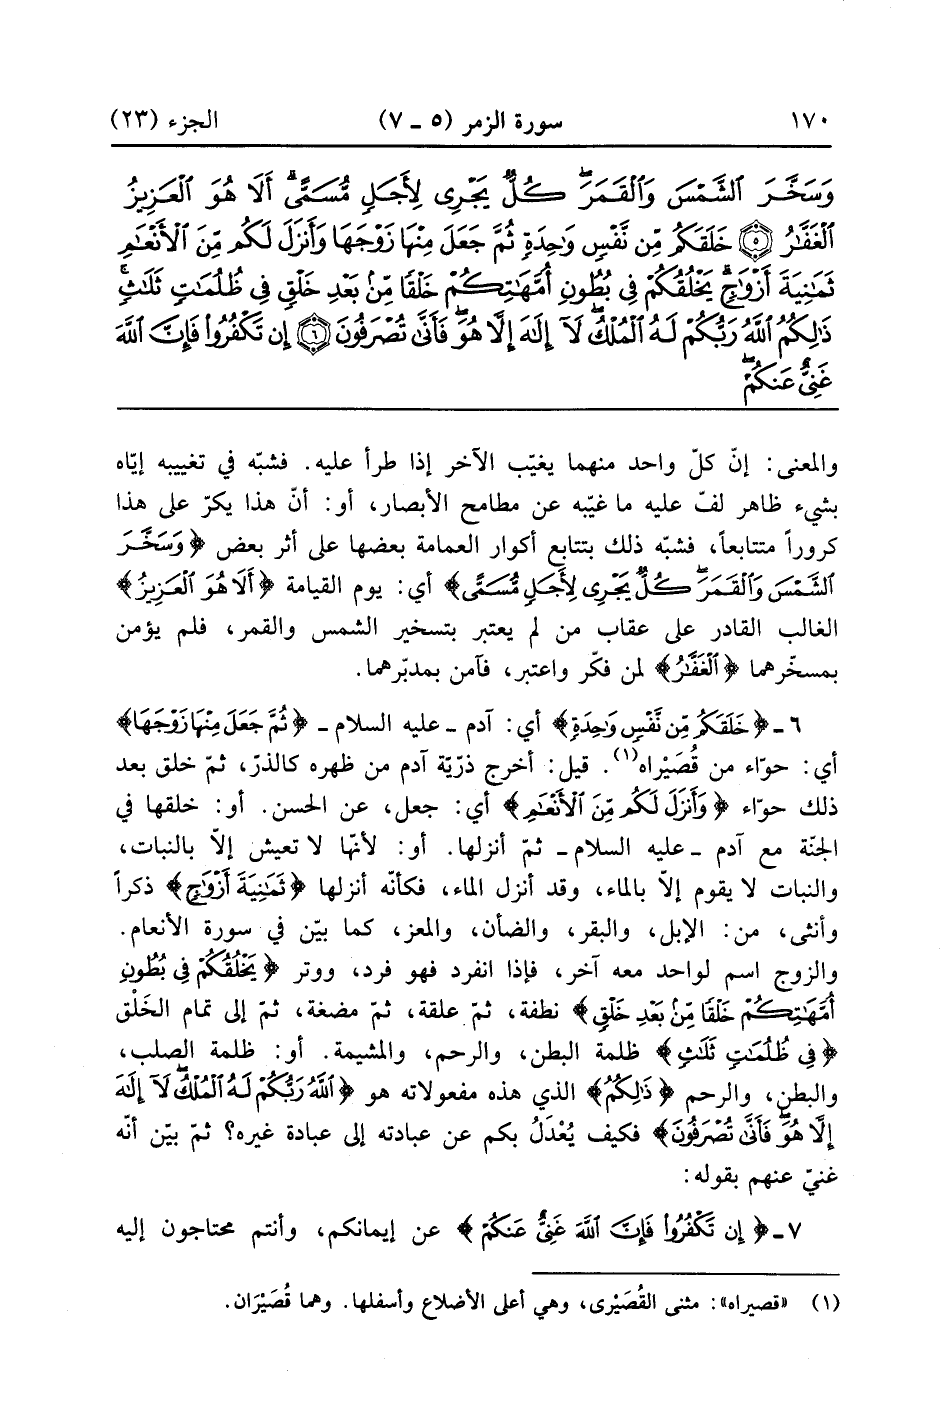 ١٧٠ سورة الزمر (٥ ـ ٧) الجزء (٢٣)
وَسَخَّرَ ٱلشَّمْسَ وَٱلْقَمَرَۖ كُلٌّ يَجْرِى لِأَجَلٍ مُّسَمًّىۗ أَلَا هُوَ ٱلْعَزِيزُ
ٱلْغَفَّٰرُ ۝٥ خَلَقَكُم مِّن نَّفْسٍ وَٰحِدَةٍ ثُمَّ جَعَلَ مِنْهَا زَوْجَهَا وَأَنزَلَ لَكُم مِّنَ ٱلْأَنْعَٰمِ
ثَمَٰنِيَةَ أَزْوَٰجٍۚ يَخْلُقُكُمْ فِى بُطُونِ أُمَّهَٰتِكُمْ خَلْقًا مِّنۢ بَعْدِ خَلْقٍ فِى ظُلُمَٰتٍ ثَلَٰثٍۚ
ذَٰلِكُمُ ٱللَّهُ رَبُّكُمْ لَهُ ٱلْمُلْكُۖ لَآ إِلَٰهَ إِلَّا هُوَۖ فَأَنَّىٰ تُصْرَفُونَ ۝٦ إِن تَكْفُرُوا۟ فَإِنَّ ٱللَّهَ
غَنِىٌّ عَنكُمْۖ
والمعنى: إنّ كلّ واحد منهما يغيّب الآخر إذا طرأ عليه. فشبّه في تغييبه إيّاه
بشيء ظاهر لفّ عليه ما غيّبه عن مطامح الأبصار، أو: أنّ هذا يكرّ على هذا
كروراً متتابعاً، فشبّه ذلك بتتابع أكوار العمامة بعضها على أثر بعض ﴿وَسَخَّرَ
ٱلشَّمْسَ وَٱلْقَمَرَۖ كُلٌّ يَجْرِى لِأَجَلٍ مُّسَمًّى﴾ أي: يوم القيامة ﴿أَلَا هُوَ ٱلْعَزِيزُ﴾
الغالب القادر على عقاب من لم يعتبر بتسخير الشمس والقمر، فلم يؤمن
بمسخّرهما ﴿ٱلْغَفَّٰرُ﴾ لمن فكّر واعتبر، فآمن بمدبّرهما.
٦ ـ ﴿خَلَقَكُم مِّن نَّفْسٍ وَٰحِدَةٍ﴾ أي: آدم ـ عليه السلام ـ ﴿ثُمَّ جَعَلَ مِنْهَا زَوْجَهَا﴾
أي: حوّاء من قُصَيْراه(١). قيل: أخرج ذرّية آدم من ظهره كالذرّ، ثمّ خلق بعد
ذلك حوّاء ﴿وَأَنزَلَ لَكُم مِّنَ ٱلْأَنْعَٰمِ﴾ أي: جعل، عن الحسن. أو: خلقها في
الجنّة مع آدم ـ عليه السلام ـ ثمّ أنزلها. أو: لأنّها لا تعيش إلاّ بالنبات،
والنبات لا يقوم إلاّ بالماء، وقد أنزل الماء، فكأنّه أنزلها ﴿ثَمَٰنِيَةَ أَزْوَٰجٍ﴾ ذكراً
وأنثى، من: الإبل، والبقر، والضأن، والمعز، كما بيّن في سورة الأنعام.
والزوج اسم لواحد معه آخر، فإذا انفرد فهو فرد، ووتر ﴿يَخْلُقُكُمْ فِى بُطُونِ
أُمَّهَٰتِكُمْ خَلْقًا مِّنۢ بَعْدِ خَلْقٍ﴾ نطفة، ثمّ علقة، ثمّ مضغة، ثمّ إلى تمام الخَلْق
﴿فِى ظُلُمَٰتٍ ثَلَٰثٍ﴾ ظلمة البطن، والرحم، والمشيمة. أو: ظلمة الصلب،
والبطن، والرحم ﴿ذَٰلِكُمُ﴾ الذي هذه مفعولاته هو ﴿ٱللَّهُ رَبُّكُمْ لَهُ ٱلْمُلْكُۖ لَآ إِلَٰهَ
إِلَّا هُوَۖ فَأَنَّىٰ تُصْرَفُونَ﴾ فكيف يُعْدَلُ بكم عن عبادته إلى عبادة غيره؟ ثمّ بيّن أنّه
غنيّ عنهم بقوله:
٧ ـ ﴿إِن تَكْفُرُوا۟ فَإِنَّ ٱللَّهَ غَنِىٌّ عَنكُمْ﴾ عن إيمانكم، وأنتم محتاجون إليه
(١) «قصيراه»: مثنى القُصَيْرى، وهي أعلى الأضلاع وأسفلها. وهما قُصَيْرَان.